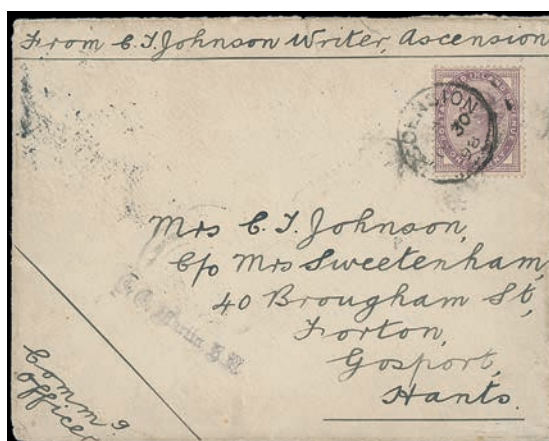 From C. J. Johnson Writer, Ascension
ASCENSION
30
98
Mrs C. J. Johnson,
C/o Mrs Sweetenham,
40 Brougham St,
Forton,
Gosport,
Hants.
Commg
Officer